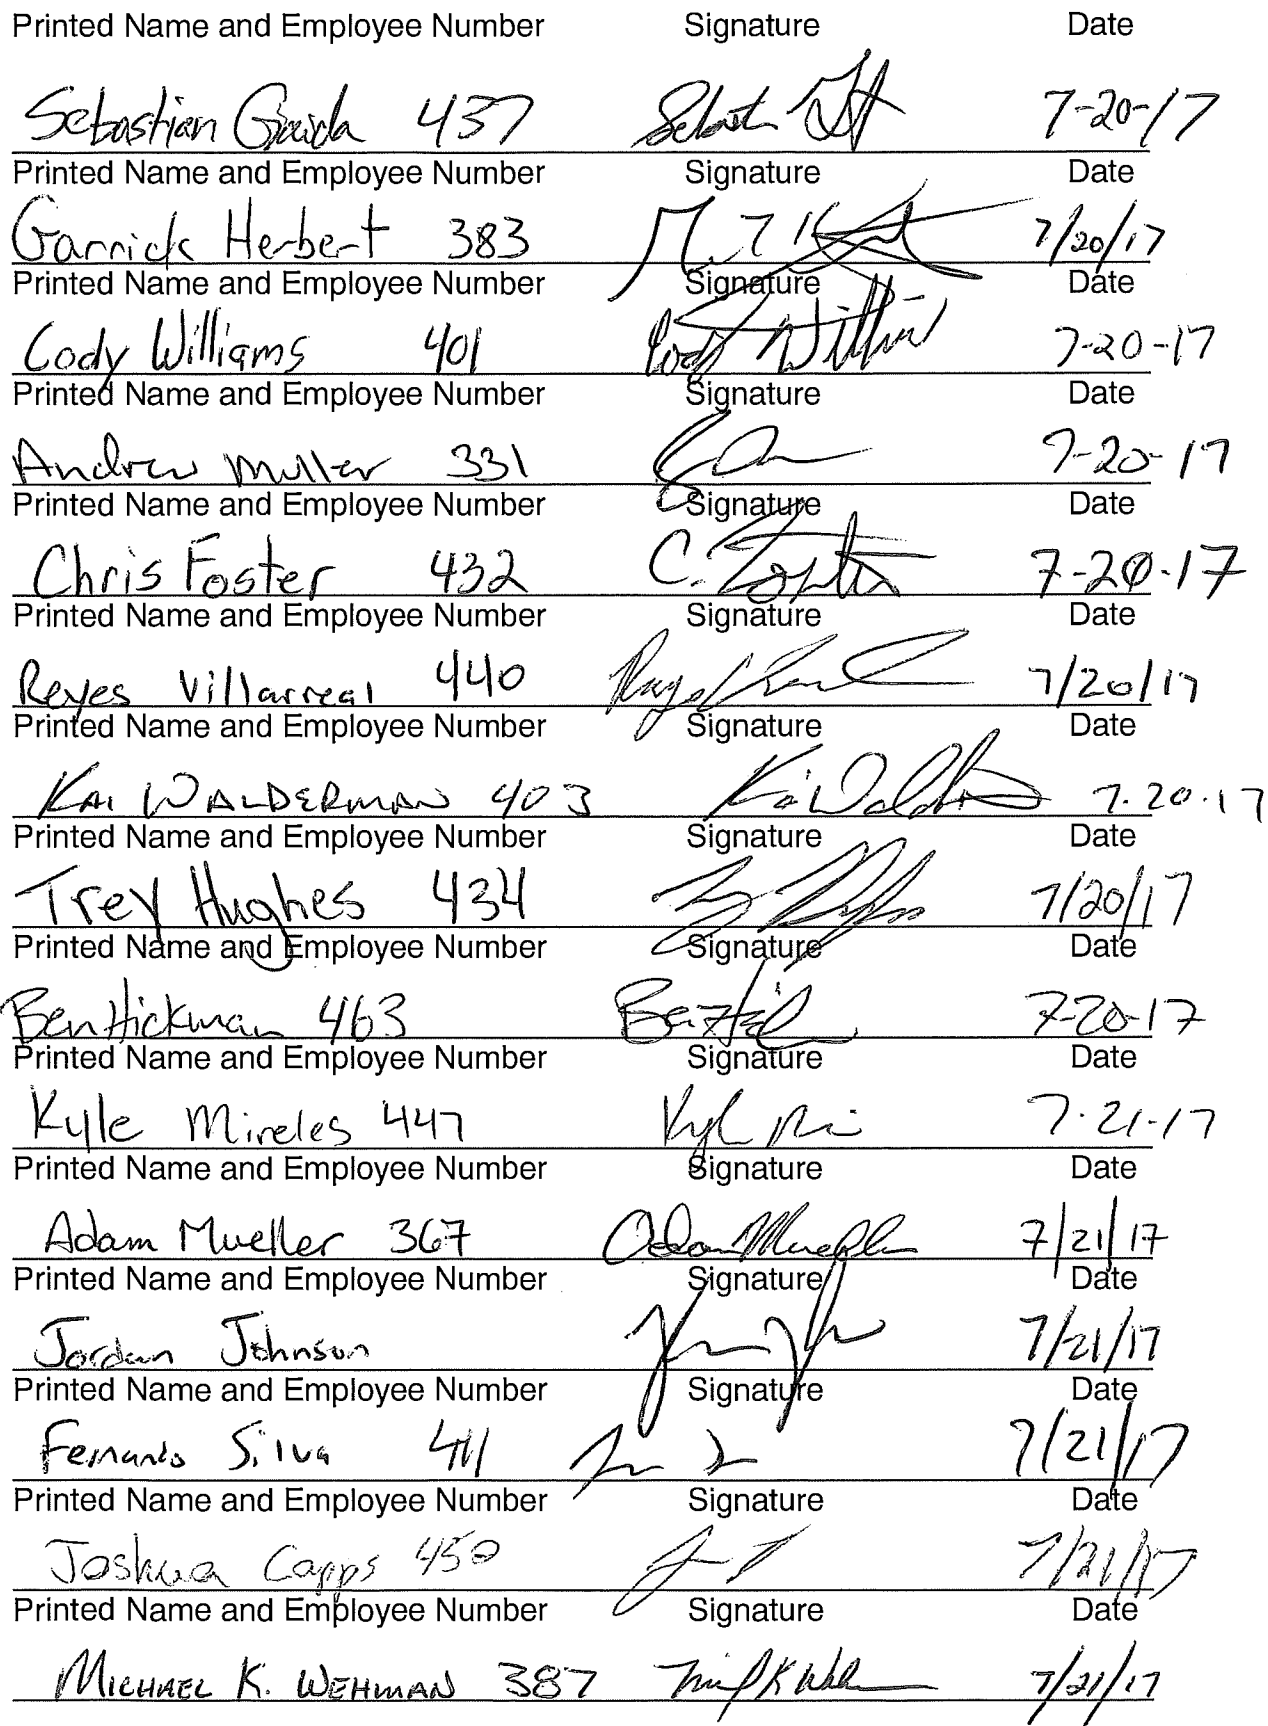 Printed Name and Employee Number Signature Date
Sebastian 437 7-20-17
Printed Name and Employee Number Signature Date
Garrick Herbert 383 7/20/17
Printed Name and Employee Number Signature Date
Cody Williams 401 Cody Willia 7-20-17
Printed Name and Employee Number Signature Date
Andrew Muller 331 7-20-17
Printed Name and Employee Number Signature Date
Chris Foster 432 C. Foster 7-20-17
Printed Name and Employee Number Signature Date
Reyes Villarreal 440 7/20/17
Printed Name and Employee Number Signature Date
KAI WALDERMAN 403 7.20.17
Printed Name and Employee Number Signature Date
Trey Hughes 434 7/20/17
Printed Name and Employee Number Signature Date
Ben Hickman 463 7-20-17
Printed Name and Employee Number Signature Date
Kyle Mireles 447 7-21-17
Printed Name and Employee Number Signature Date
Adam Mueller 367 Adam Mueller 7/21/17
Printed Name and Employee Number Signature Date
Jordan Johnson 7/21/17
Printed Name and Employee Number Signature Date
Fernando Silva 411 7/21/17
Printed Name and Employee Number Signature Date
Joshua Capps 450 7/21/17
Printed Name and Employee Number Signature Date
MICHAEL K. WEHMAN 387 7/21/17